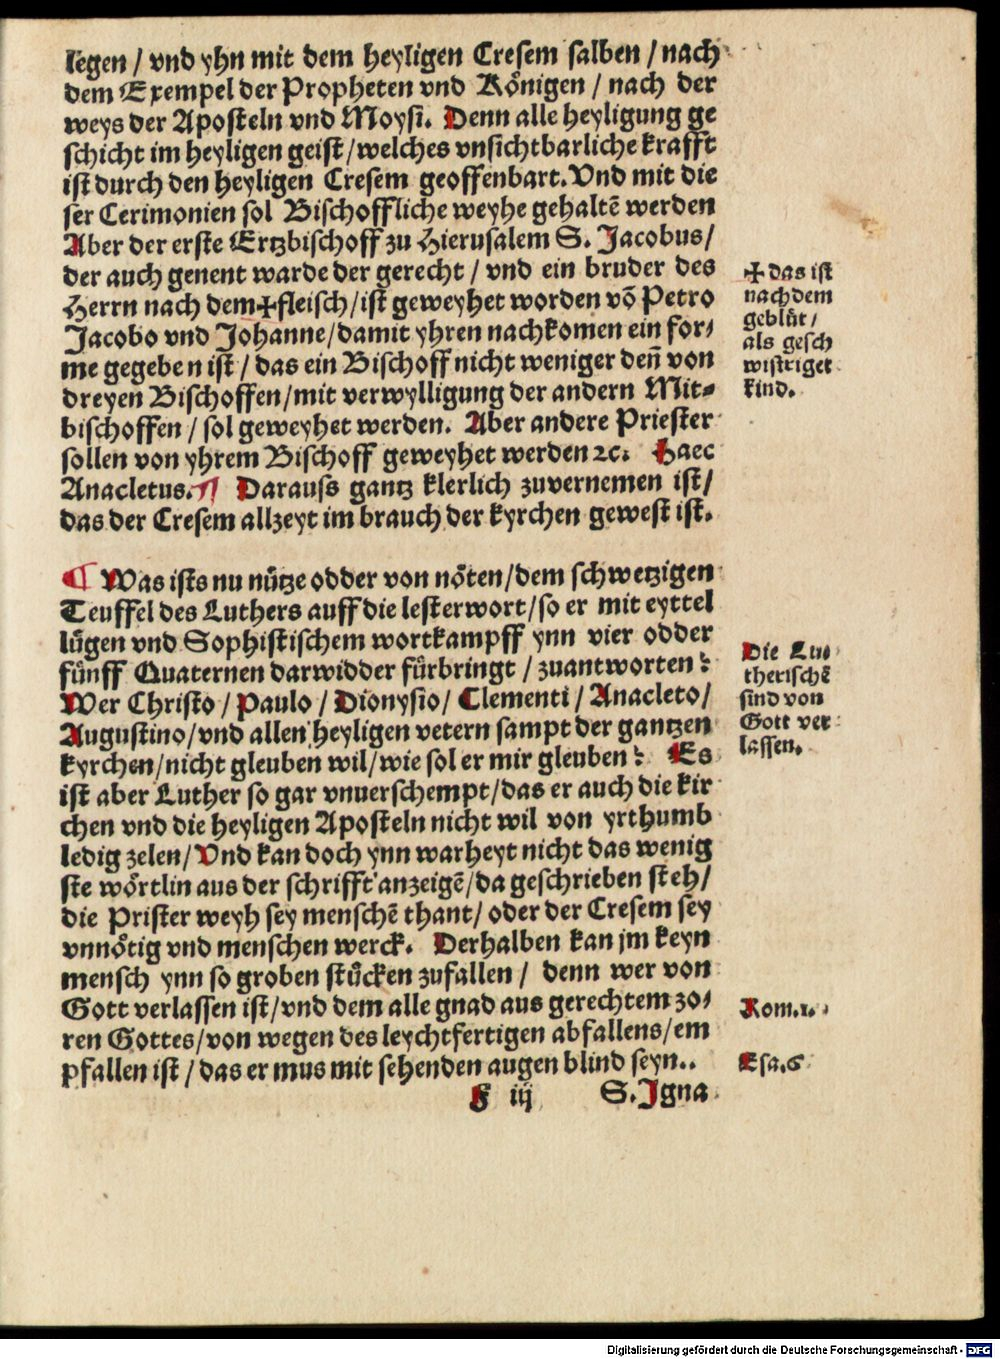 legen / vnd yhn mit dem heyligen Cresem salben / nach
dem Exempel der Propheten vnd Koͤnigen / nach der
weys der Aposteln vnd Moysi. Denn alle heyligung ge
schicht im heyligen geist / welches vnsichtbarliche krafft
ist durch den heyligen Cresem geoffenbart. Vnd mit die
ser Cerimonien sol Bischoffliche weyhe gehaltē werden
Aber der erste Ertzbischoff zu Hierusalem S. Jacobus /
der auch genent warde der gerecht / vnd ein bruder des
Herrn nach dem ✠ fleisch / ist geweyhet worden vō Petro
Jacobo vnd Johanne / damit yhren nachkomen ein for⸗
me gegeben ist / das ein Bischoff nicht weniger deñ von
dreyen Bischoffen / mit verwylligung der andern Mit⸗
bischoffen / sol geweyhet werden. Aber andere Priester
sollen von yhrem Bischoff geweyhet werden ꝛc. Haec
Anacletus. Darauss gantz klerlich zuvernemen ist /
das der Cresem allzeyt im brauch der kyrchen gewest ist.
✠ das ist
nach dem
gebluͤt /
als gesch
wistriget
kind.
¶ Was ists nu nuͤtze odder von noͤten / dem schwetzigen
Teuffel des Luthers auff die lesterwort / so er mit eyttel
luͤgen vnd Sophistischem wortkampff ynn vier odder
fuͤnff Quaternen darwidder fuͤrbringt / zuantworten?
Wer Christo / Paulo / Dionysio / Clementi / Anacleto /
Augustino / vnd allen heyligen vetern sampt der gantzen
kyrchen / nicht gleuben wil / wie sol er mir gleuben? Es
ist aber Luther so gar vnuerschempt / das er auch die kir
chen vnd die heyligen Aposteln nicht wil von yrthumb
ledig zelen / Vnd kan doch ynn warheyt nicht das wenig
ste woͤrtlin aus der schrifft anzeigē / da geschrieben steh /
die Prister weyh sey menschē thant / oder der Cresem sey
vnnoͤtig vnd menschen werck. Derhalben kan jm keyn
mensch ynn so groben stuͤcken zufallen / denn wer von
Gott verlassen ist / vnd dem alle gnad aus gerechtem zo⸗
ren Gottes / von wegen des leychtfertigen abfallens / em
pfallen ist / das er mus mit sehenden augen blind seyn..
Die Lu⸗
therischē
sind von
Gott ver
lassen.
Rom.1.
Esa.6
F iij S. Igna
Digitalisierung gefördert durch die Deutsche Forschungsgemeinschaft - DFG